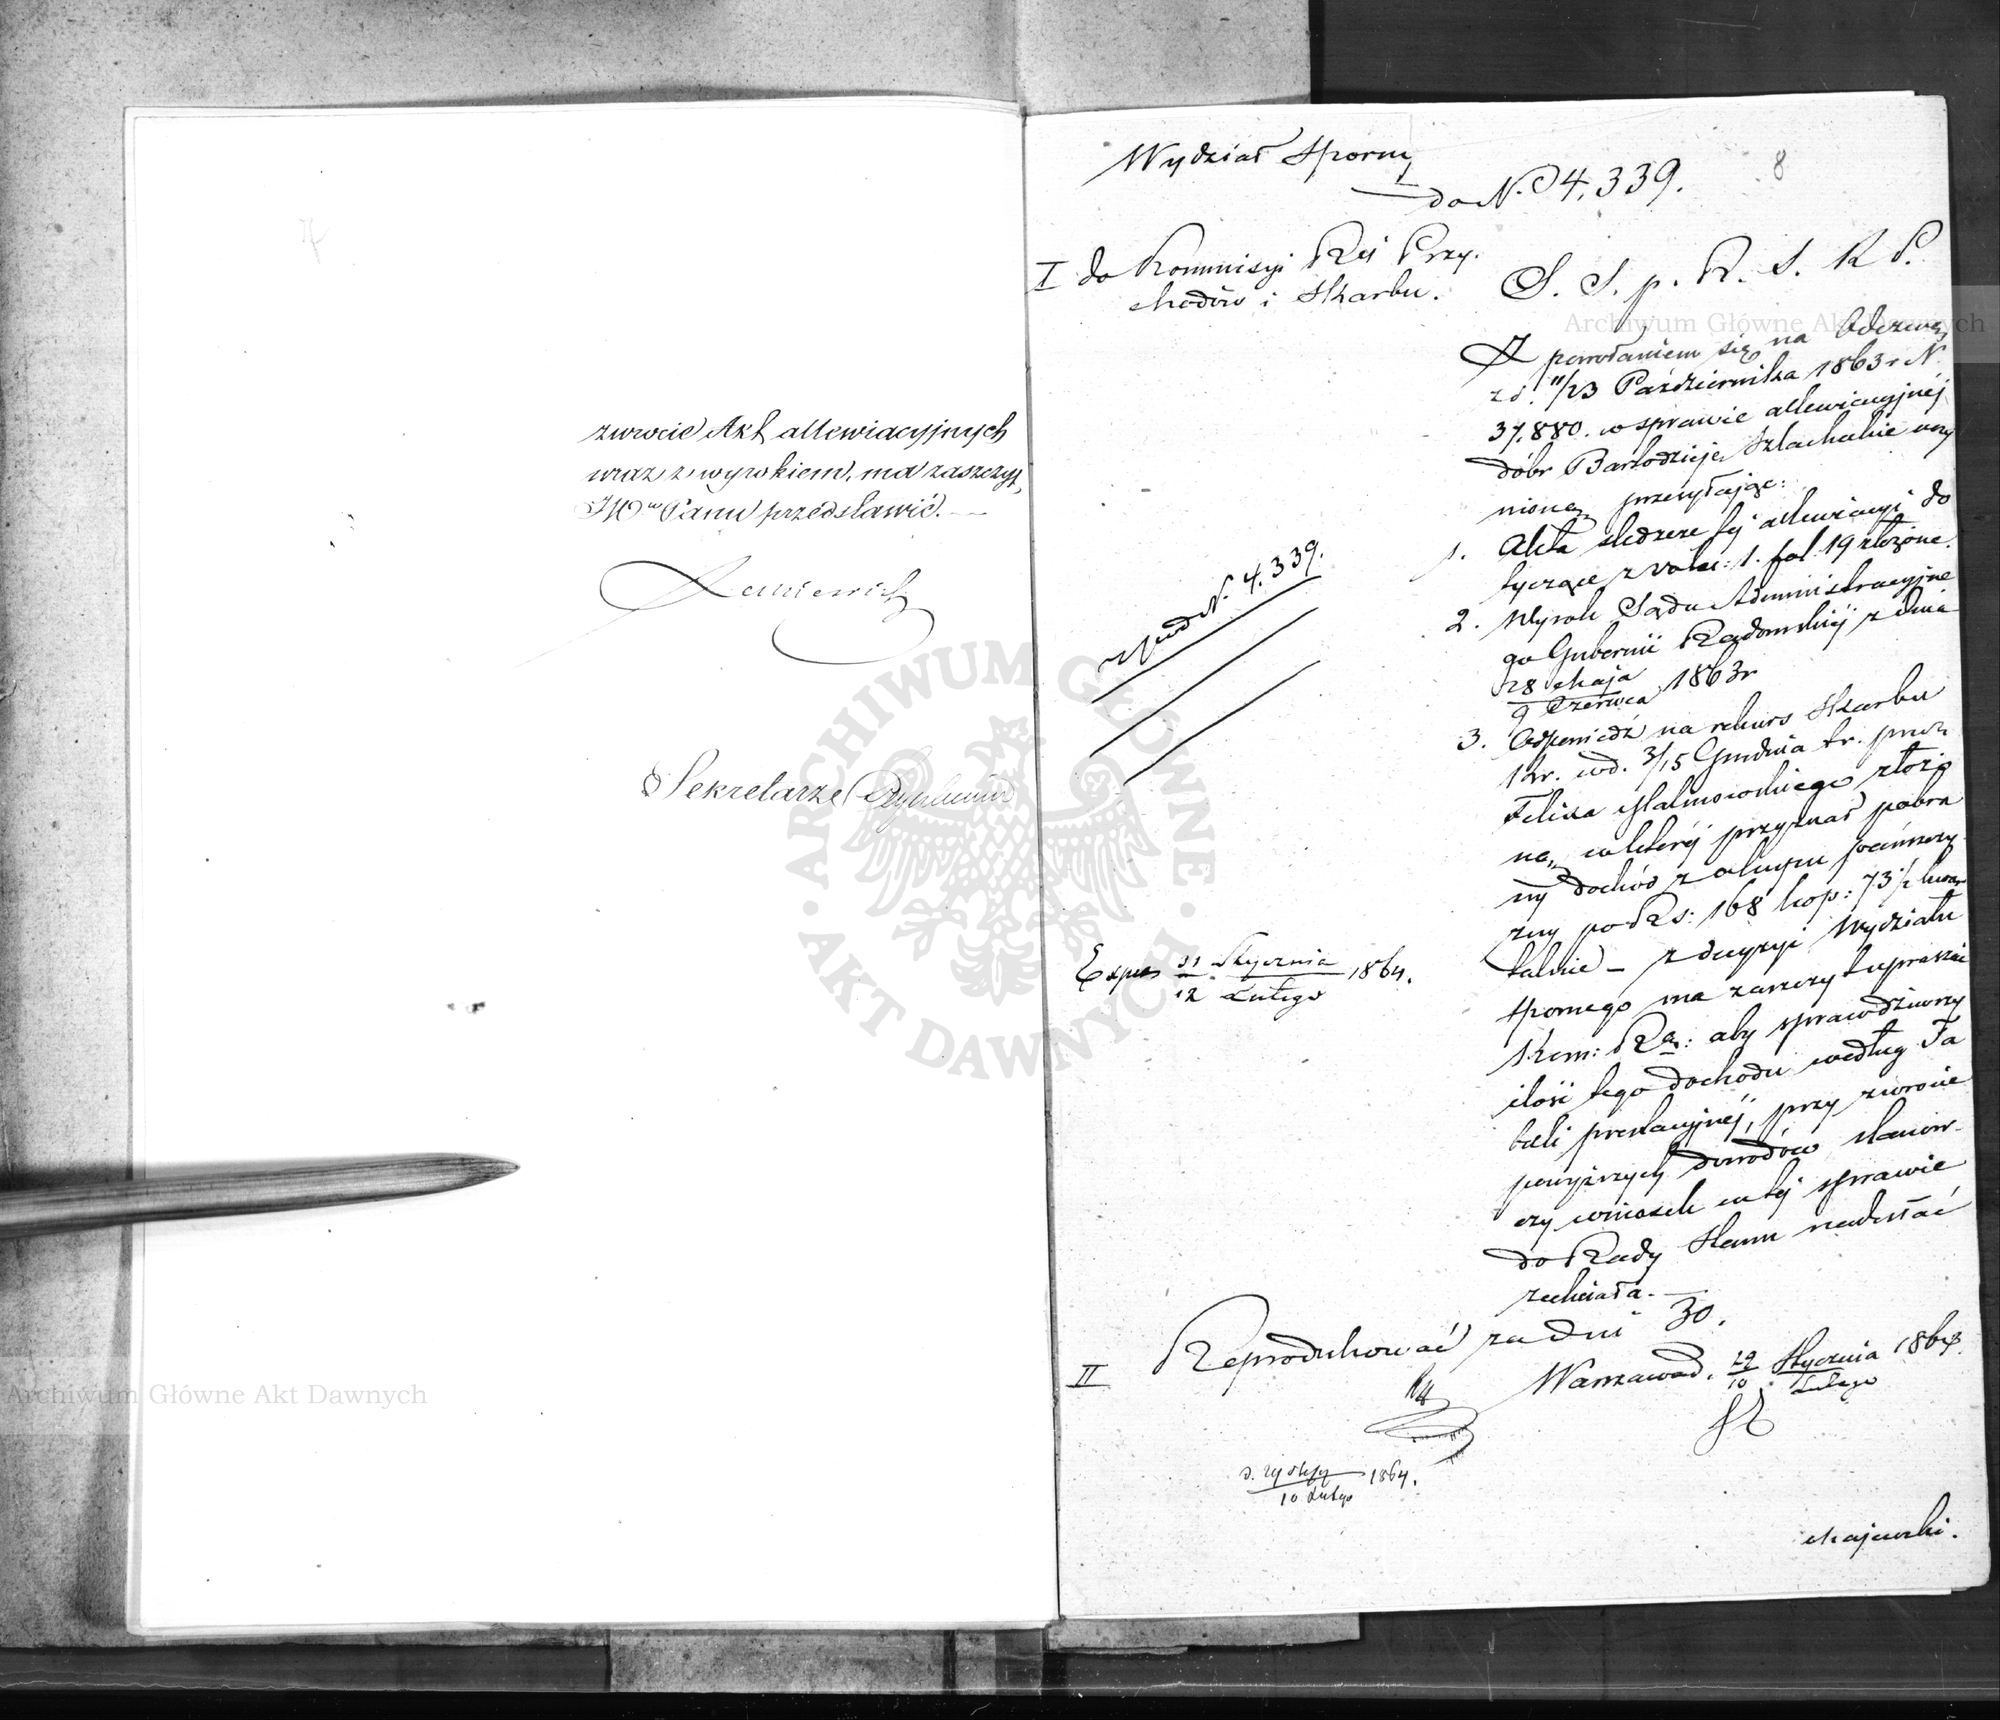 zwrocie Akt allewiacyjnych
wraz z wyrokiem, ma zaszczyt
JWu Panu przedstawić. —
Sekretarze
Wydział Sporny
8
do N. 4,339.
I do Kommisyi Rej Przy-
chodów i Skarbu.
S. S. p. R. S. K P.
Z powołaniem się na Odezwę
z d. 11/23 Października 1863 r N
37,880. w sprawie allewiacyjnej
dóbr Bartodzieje Szlacheckie uczy
nioną, przesyłając:
1. Akta śledcze tej allewiacyi do
tyczące z volu: 1. fol. 19 złożone.
2. Wyrok Sądu Administracyjne
go Gubernii Radomskiej z dnia
28 Maja
9 Czerwca 1863 r
3. Odpowiedź na rekurs Skarbu
w d. 3/15 Grudnia t r. przez
Felixa Malinowskiego złożo
ną, w której przyznał pobra
ny dochód z okupu pańszczy
zny po Rs: 168 kop: 73½ kwar
talnie – z decyzyi Wydziału
Spornego ma zaszczyt upraszać
Kom: Rą: aby sprawdziwszy
ilość tego dochodu według Ta
beli prestacyjnej, przy zwrocie
powyższych dowodów stanow-
czy wniosek w tej sprawie
do Rady Stanu nadesłać
zechciała. —
z pod N. 4,339.
Exped 31 Stycznia
12 Lutego 1864.
II Reprodukować za dni 30.
Warszawa d. 29 Stycznia
10 Lutego 1864.
10 Lutego 1864.
Majewski.
Archiwum Główne Akt Dawnych
Archiwum Główne Akt Dawnych
ARCHIWUM GŁÓWNE · AKT DAWNYCH ·